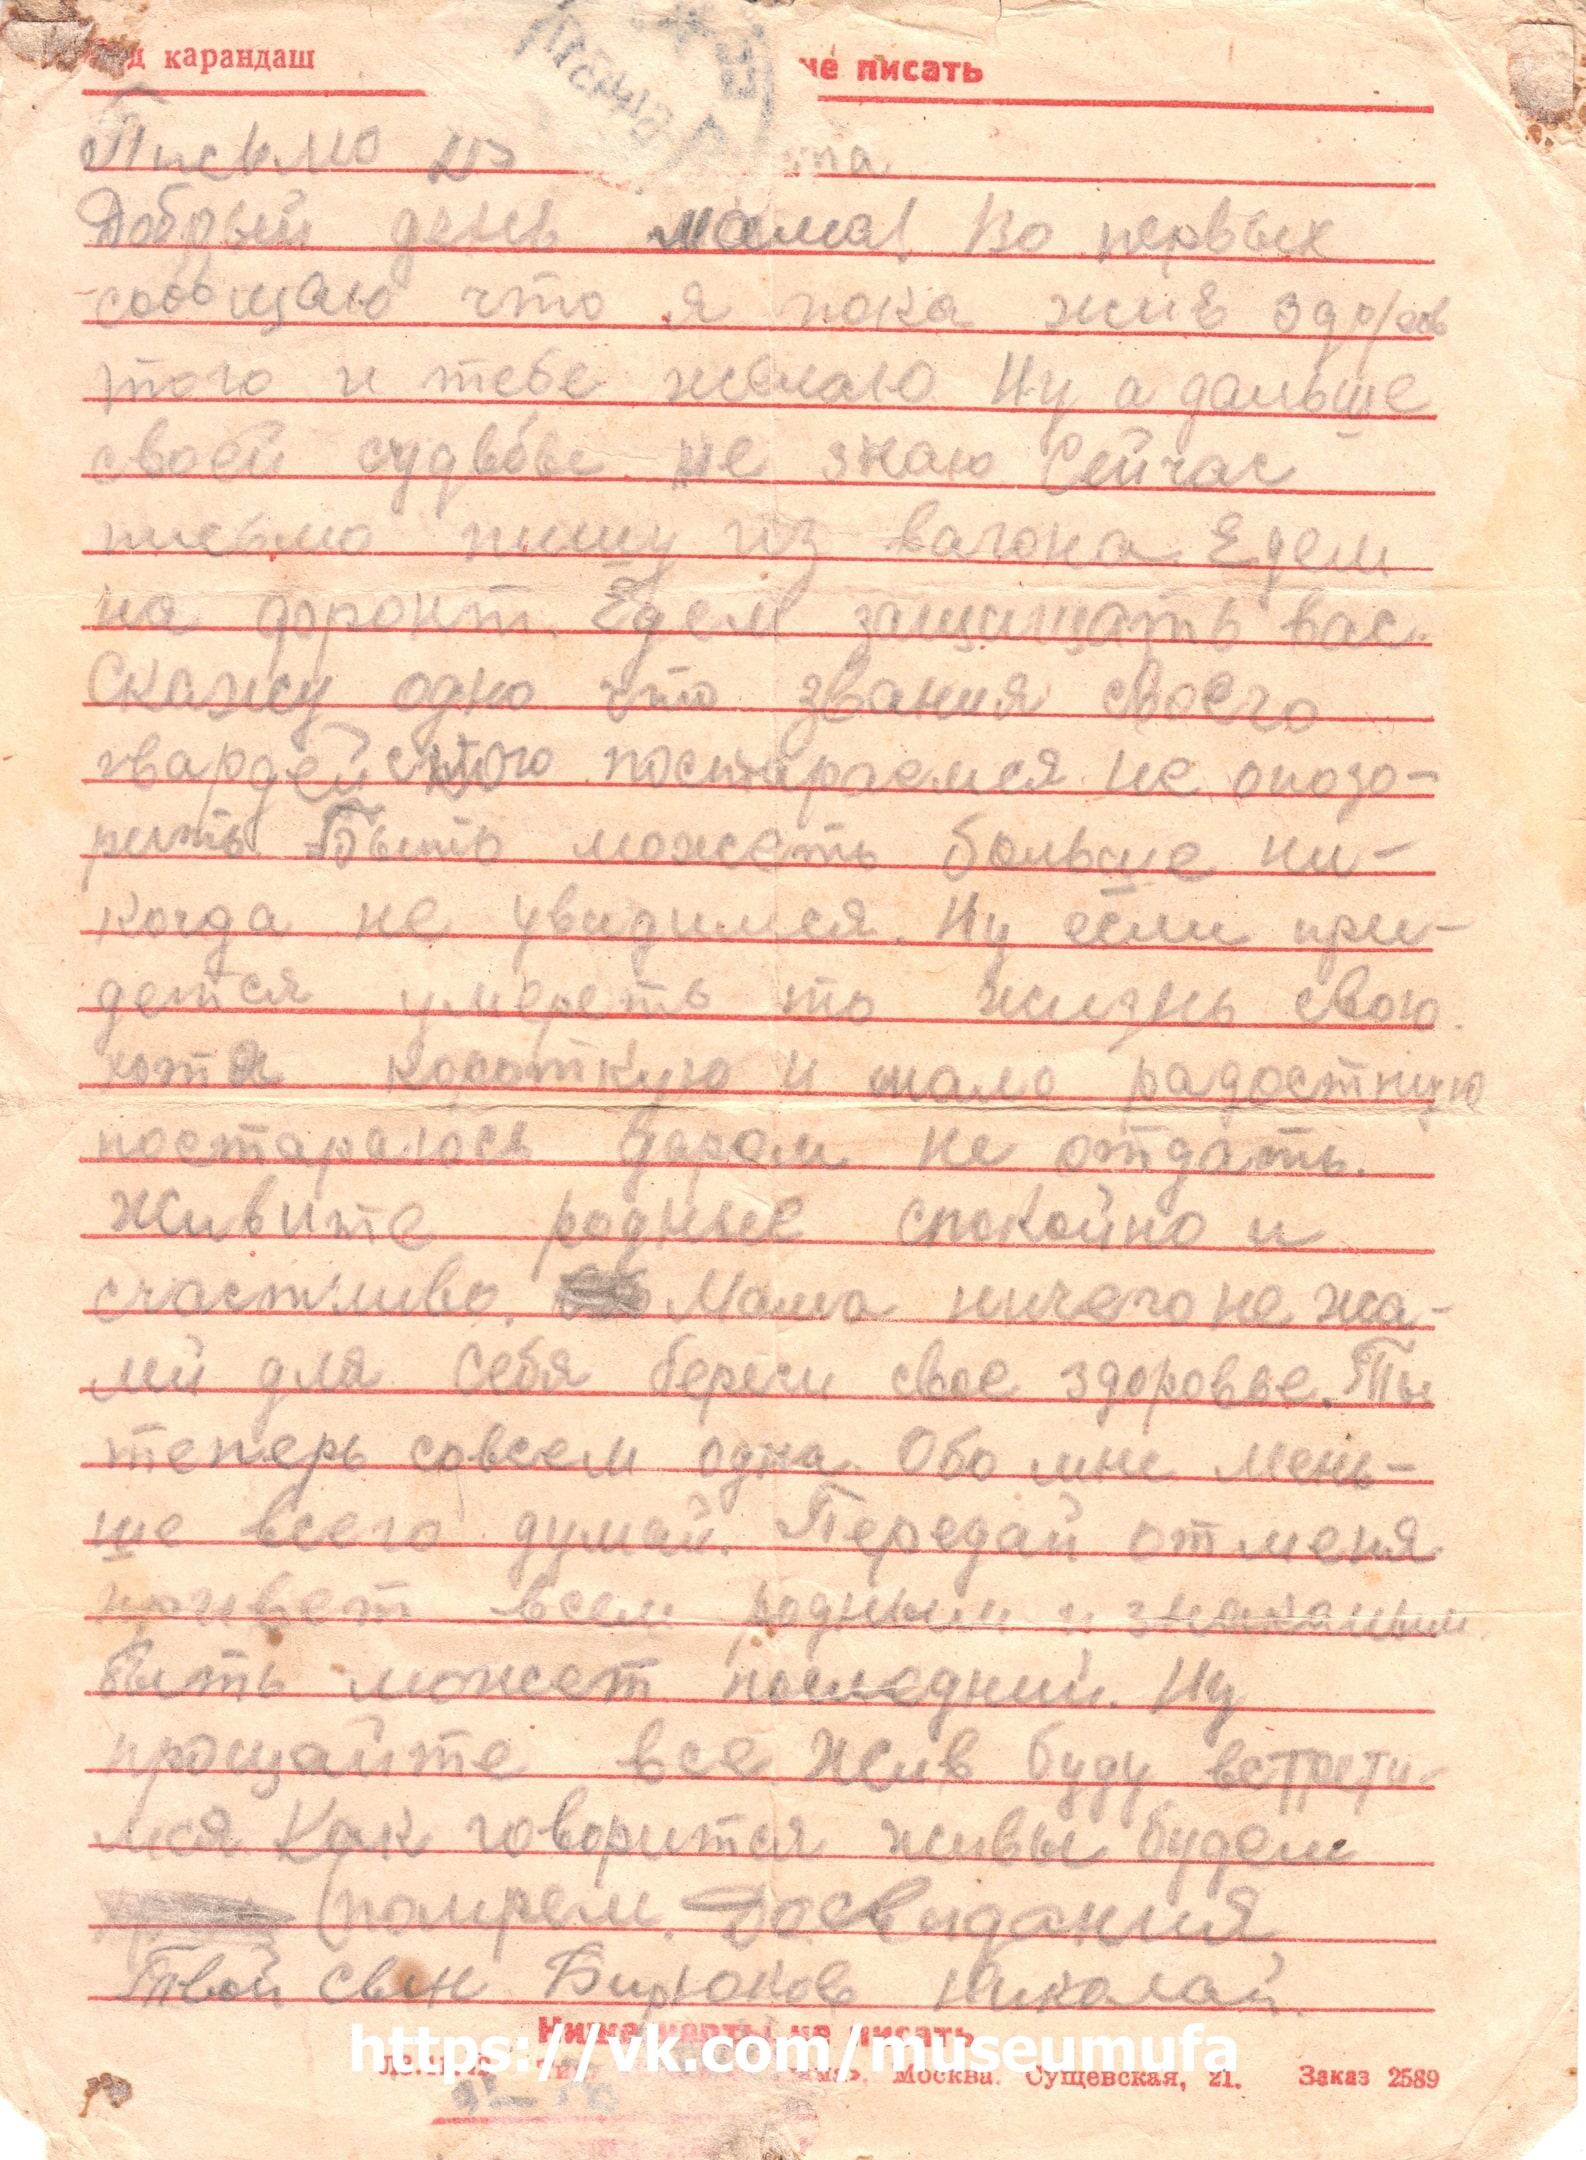 карандаш не писать
Письмо из
Добрый день мама! Во первых
сообщаю что я пока жив здоров
того и тебе желаю Ну а дальше
своей судьбы не знаю Сейчас
письмо пишу из вагона Едем
на фронт. Едем защищать вас.
Скажу одно что звания своего
гвардейского постараемся не опозо-
рить. Быть можеть больше ни-
когда не увидимся. Ну если при-
дется умереть то жизнь свою
хотя короткую и мало радостную
постараюсь даром не отдать.
Живите родные спокойно и
счастливо. Мама ничего не жа-
лей для себя береги свое здоровье. Ты
теперь совсем одна. Обо мне мень-
ше всего думай. Передай от меня
привет всем родным и знакомым.
Быть может последний. Ну
прощайте все Жив буду встрети-
мся. Как говорится живы будем
помрем. Досвидания
Твой сын Бирюков Николай.
Ниже черты не писать
https://vk.com/museumufa
Москва. Сущевская, 21. Заказ 2589